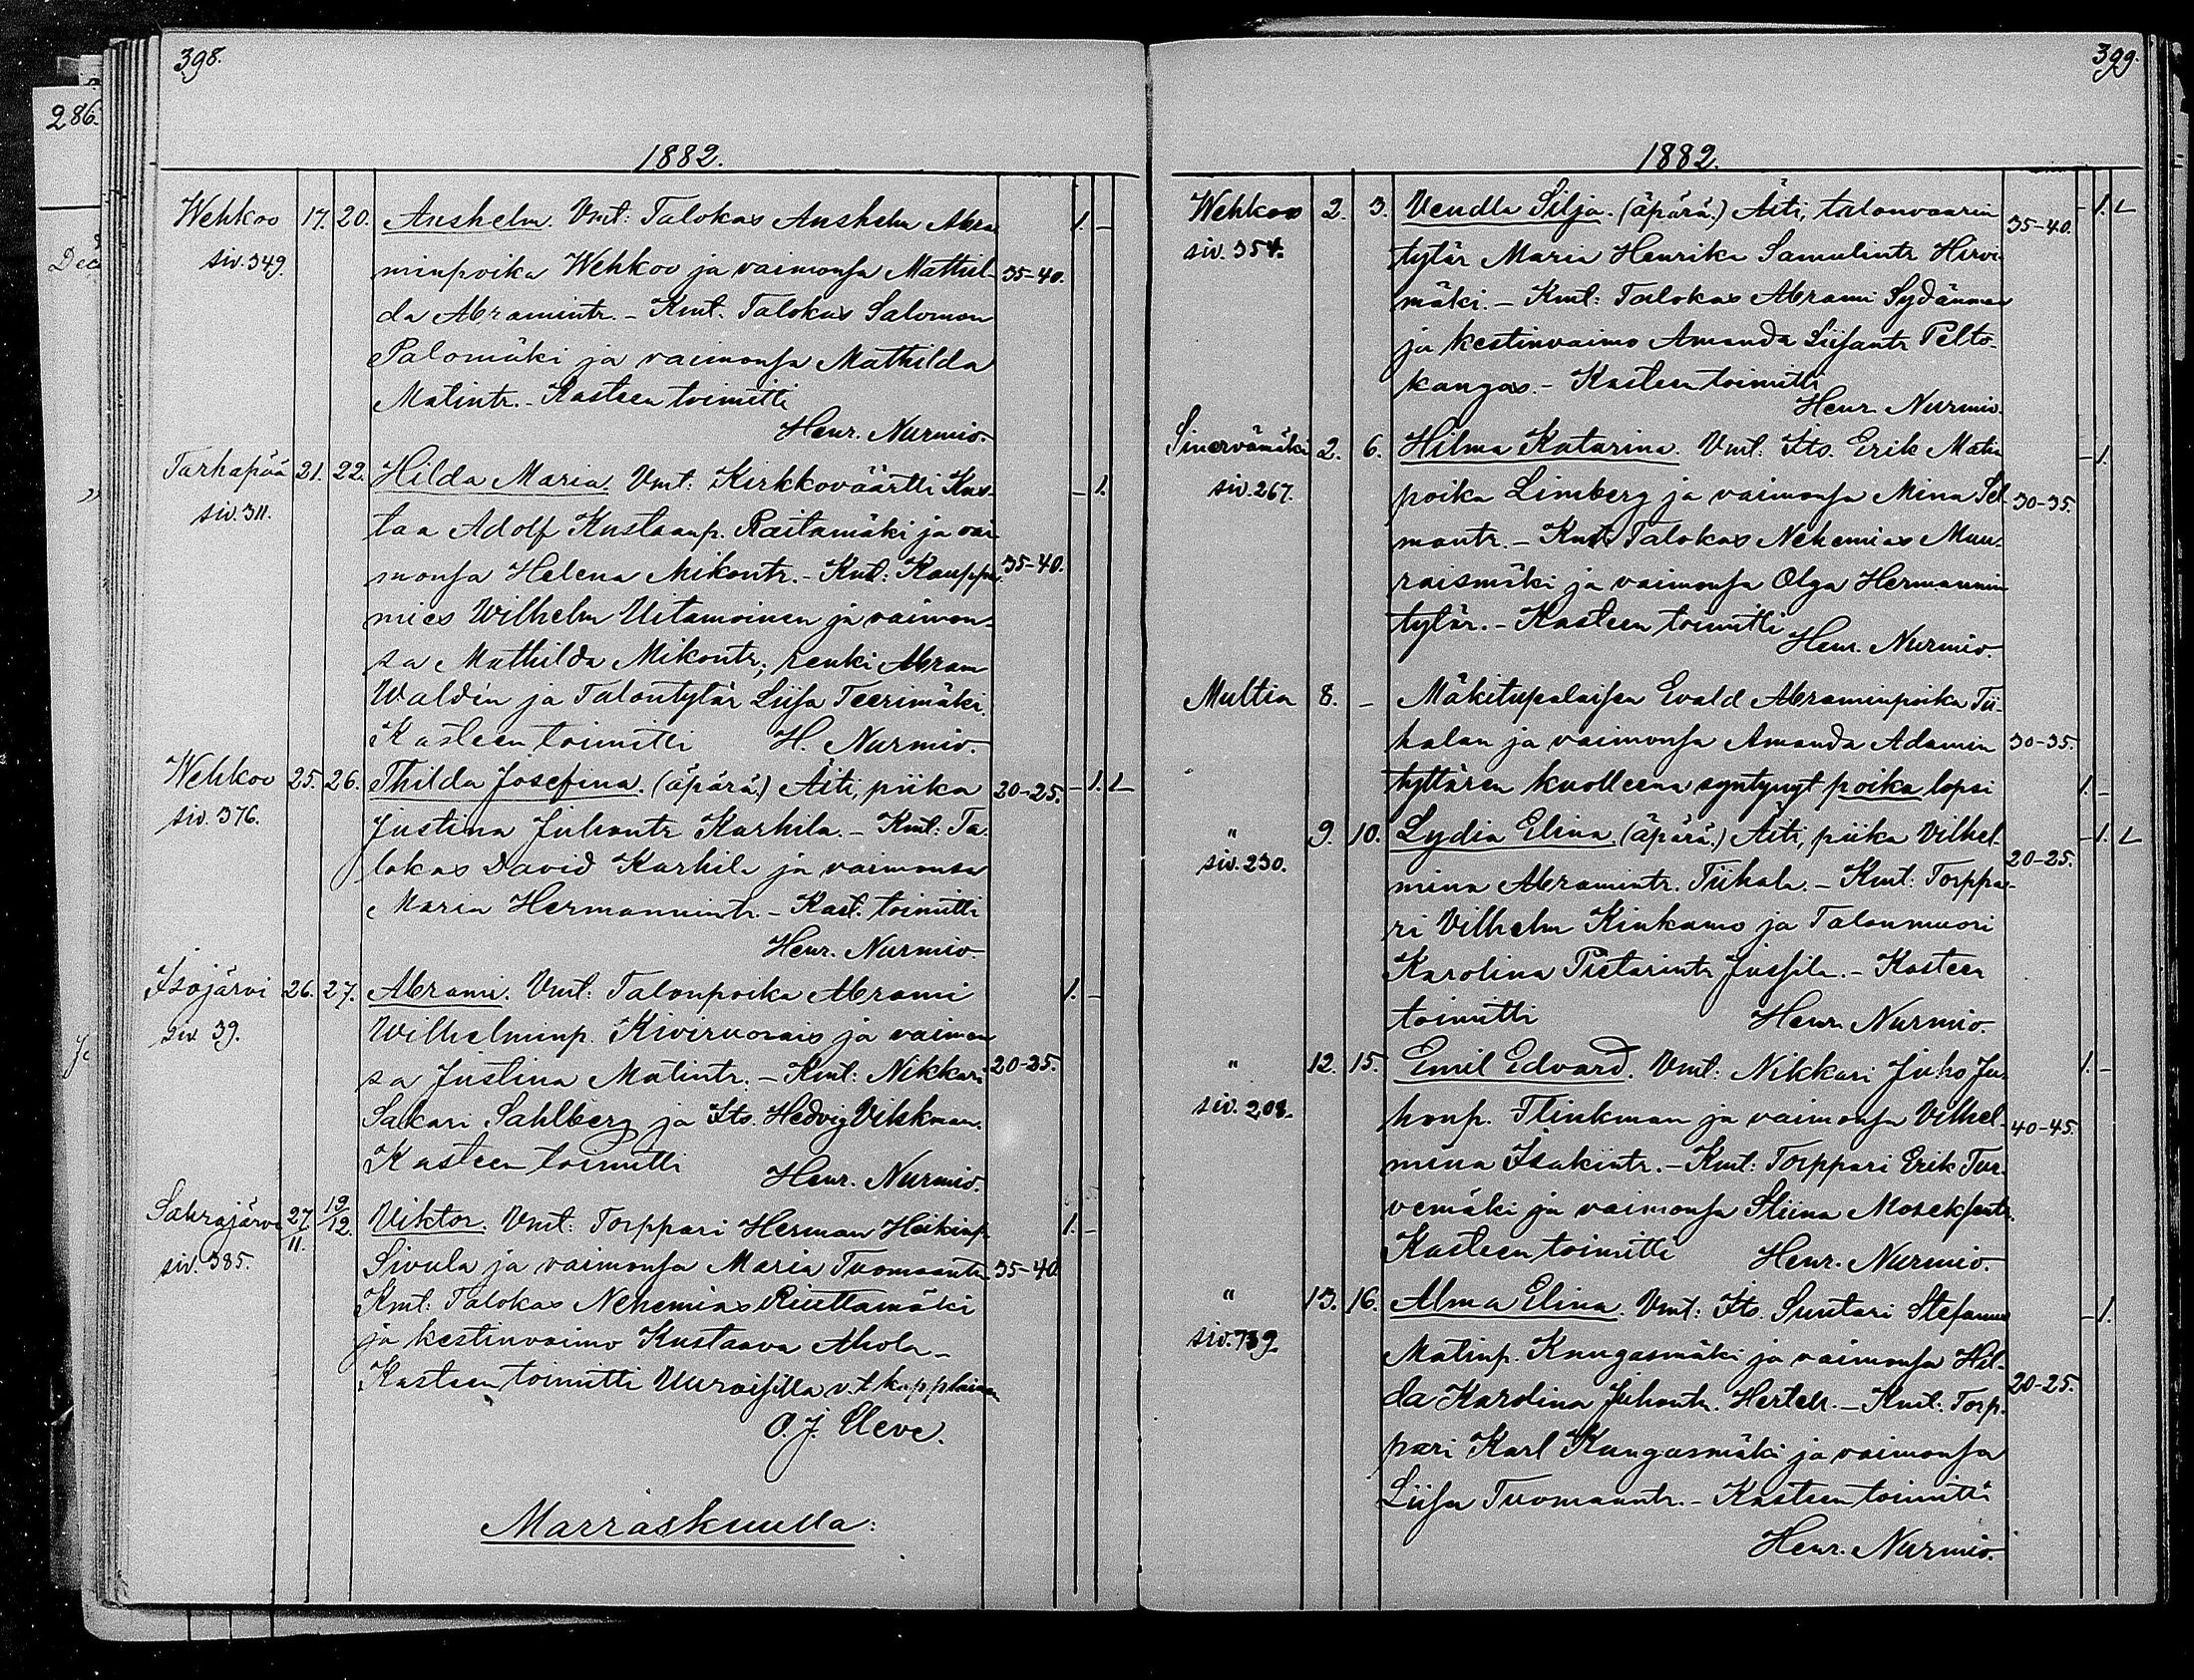 398.
1882.
Wehkoo 17. 20. Anshelm. Vmt: Talokas Anshelm Abra 1. –
siv. 349. minpoika Wehkoo ja vaimonsa Mathil- 35–40.
da Abramintr. – Kmt. Talokas Salomon
Palomäki ja vaimonsa Mathilda
Matintr. – Kasteen toimitti
Henr. Nurmio.
Tarhapää 21. 22. Hilda Maria. Vmt: Kirkkoväärtti Kus- – 1.
siv. 311. taa Adolf Kustaanp. Raitamäki ja vai-
monsa Helena Mikontr. – Kmt: Kauppa- 35–40.
mies Wilhelm Uitamoinen ja vaimon-
sa Mathilda Mikontr; renki Abram
Waldén ja Talontytär Liisa Teerimäki.
Kasteen toimitti H. Nurmio.
Wehkoo 25. 26. Thilda Josefina. (äpärä.) Äiti, piika 20–25. – 1. L
siv. 376. Justina Juhontr Karhila. – Kmt: Ta-
lokas David Karhila ja vaimonsa
Maria Hermannintr. – Kast. toimitti
Henr. Nurmio.
Isojärvi 26. 27. Abrami. Vmt: Talonpoika Abrami 1. –
siv. 39. Wilhelminp. Kiviruorais ja vaimon
sa Justina Matintr. – Kmt: Nikkari 20–25.
Sakari Sahlberg ja Its. Hedvig Vilskman.
Kasteen toimitti
Henr. Nurmio.
Sahrajärvi 27/11. 19/12. Viktor. Vmt: Torppari Herman Heikinp. 1. –
siv. 385. Sivula ja vaimonsa Maria Tuomaantr. 35–40
Kmt: Talokas Nehemias Riuttamäki
ja kestinvaimo Kustaava Ahola –
Kasteen toimitti Uuraisilla v.t. kapplainen
O. J. Cleve.
Marraskuulla:
399.
1882.
Wehkoo 2. 3. Vendla Silja. (äpärä.) Äiti, talonvaarin 35–40. – 1. L
siv. 354. tytär Maria Henrika Samulintr Hirvi-
mäki. – Kmt: Talokas Abrami Sydänmaa
ja kestinvaimo Amanda Liisantr Pelto-
kangas. – Kasteen toimitti
Henr. Nurmio.
Sinervämäki 2. 6. Hilma Katarina. Vmt: Its. Erik Matin – 1.
siv. 267. poika Limberg ja vaimonsa Mina Sel- 30–35.
montr. – Kmt: Talokas Nehemias Muu-
raismäki ja vaimonsa Olga Hermannin
tytär. – Kasteen toimitti
Henr. Nurmio.
Multia 8. – Mäkitupalaisen Evald Abraminpoika Tii-
halan ja vaimonsa Amanda Adamin 30–35.
tyttären kuolleena syntynyt poika lapsi 1. –
" 9. 10. Lydia Elina. (äpärä.) Äiti, piika Vilhel- – 1. L
siv. 230. mina Abramintr. Tiihala. – Kmt: Torppa- 20–25.
ri Vilhelm Kinkamo ja Talonmuori
Karolina Pietarintr Jussila. – Kasteen
toimitti Henr. Nurmio.
" 12. 15. Emil Edvard. Vmt: Nikkari Juho Ju- 1. –
siv. 208. honp. Flinkman ja vaimonsa Vilhel- 40–45.
mina Isakintr. – Kmt: Torppari Erik Tur-
vemäki ja vaimonsa Stiina Moseksentr.
Kasteen toimitti Henr. Nurmio.
" 13. 16. Alma Elina. Vmt: Its. Suutari Stefanus – 1.
siv. 739. Matinp. Kangasmäki ja vaimonsa Hil-
da Karolina Juhontr. Hertell. – Kmt: Torp- 20–25.
pari Karl Kangasmäki ja vaimonsa
Liisa Tuomaantr. – Kasteen toimitti
Henr. Nurmio.
286.